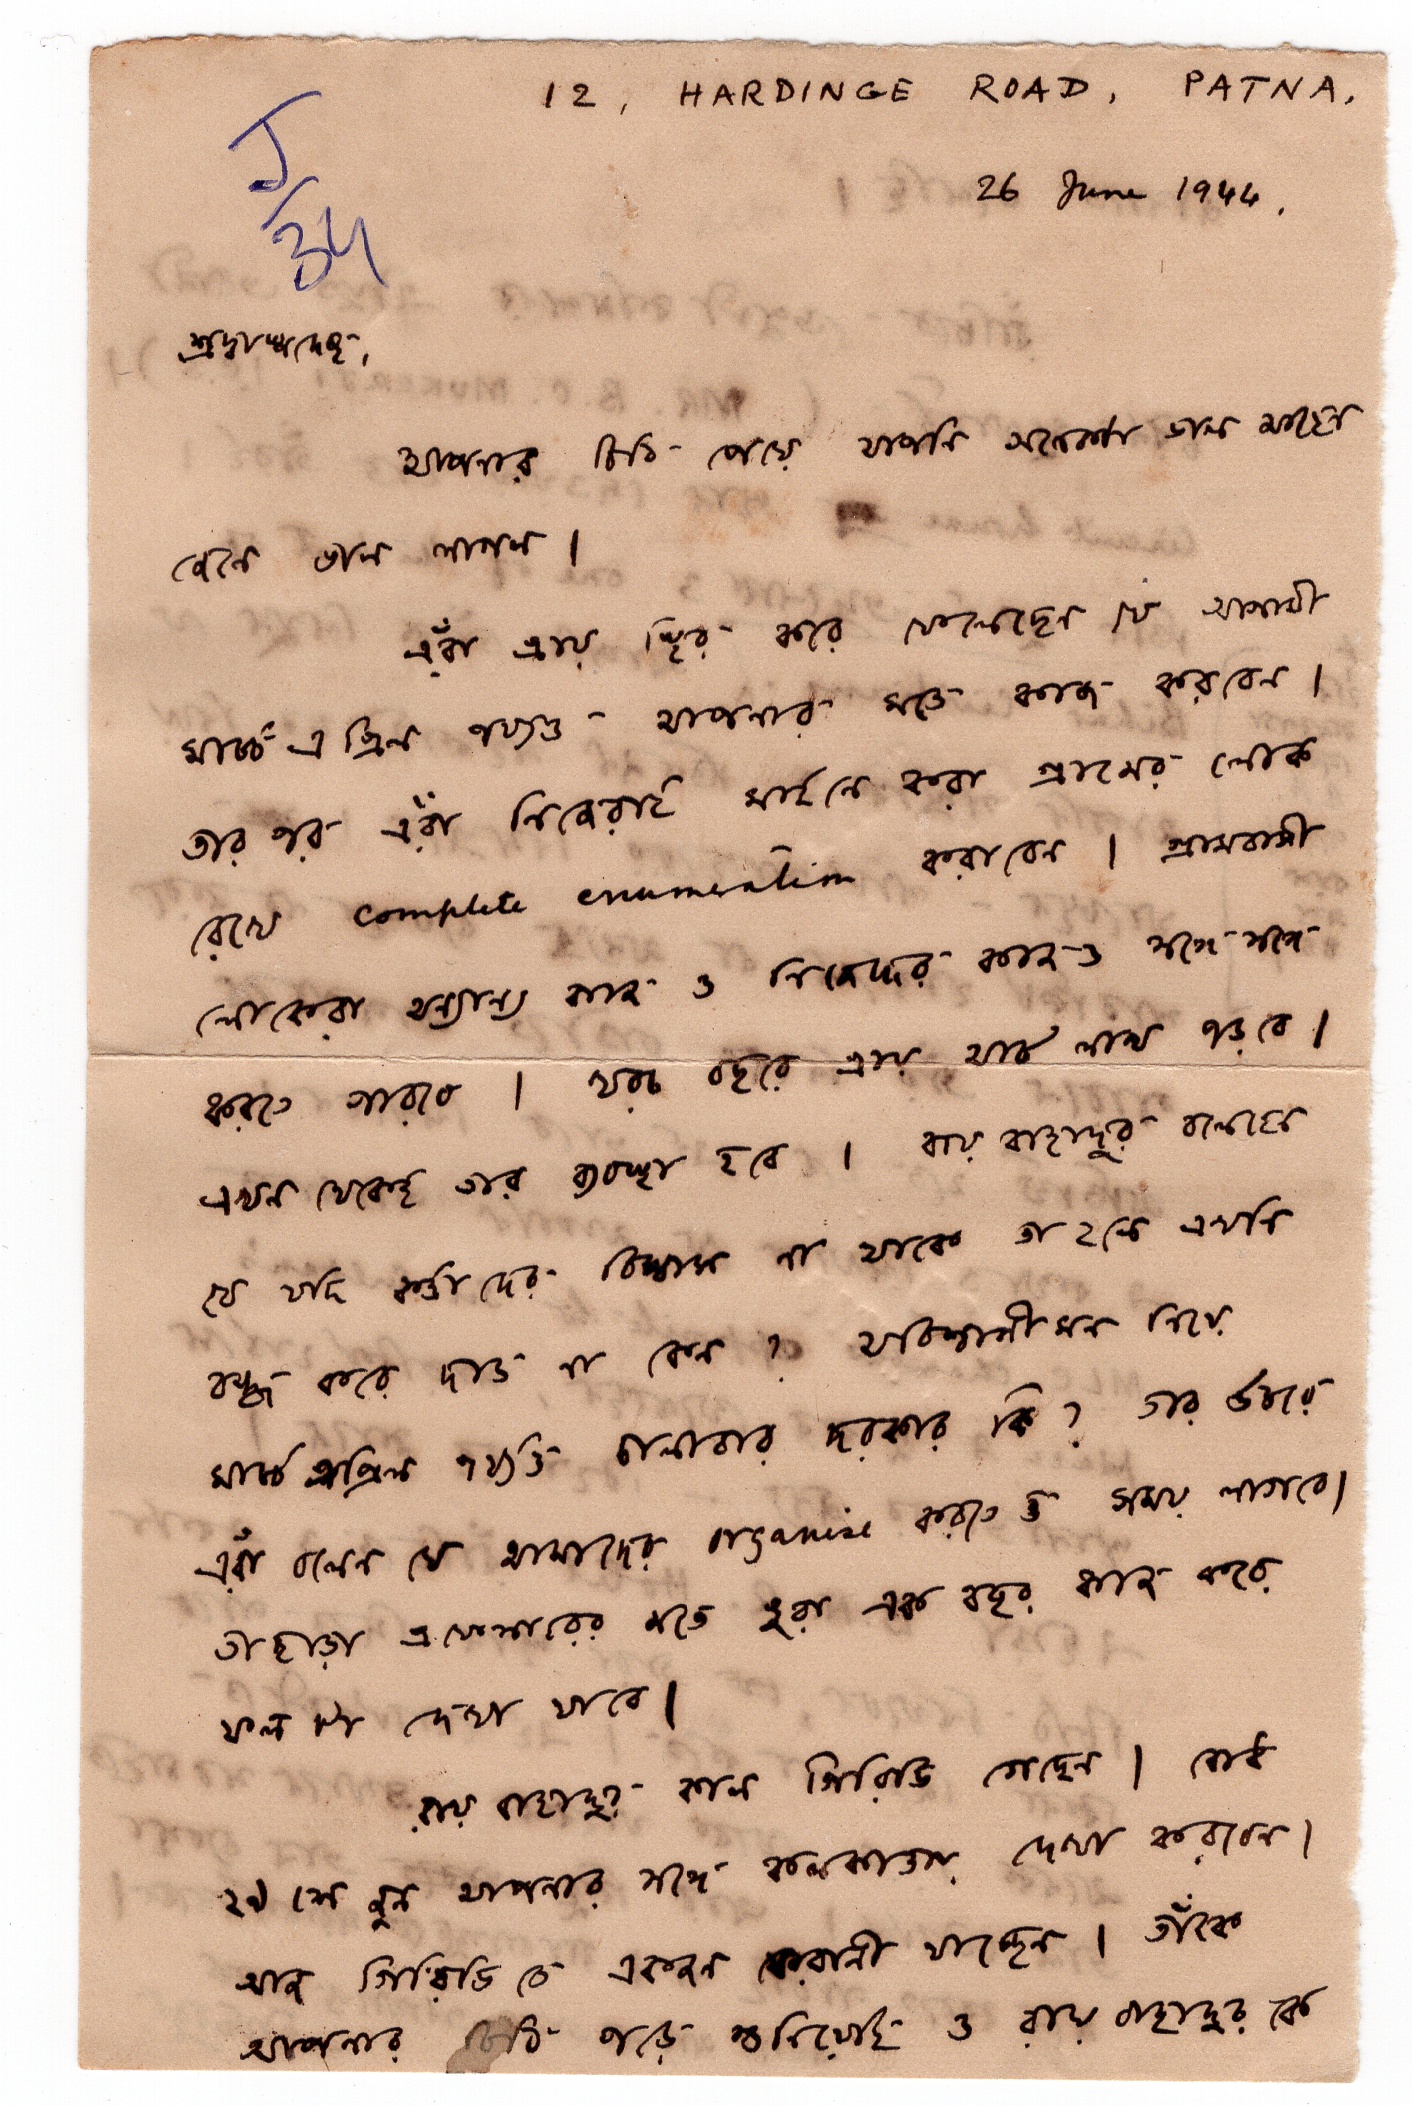 12, HARDINGE ROAD, PATNA.
26 June 1944.
J/34
শ্রদ্ধাস্পদেষু,
আপনার চিঠি পেয়ে আপনি অনেকটা ভাল আছেন
জেনে ভাল লাগল।
এঁরা প্রায় স্থির করে ফেলেছেন যে আগামী
মার্চ্চ এপ্রিল পর্য্যন্ত আপনার মতে কাজ করবেন।
তার পর এঁরা নিজেরাই মাইনে করা গ্রামের লোক
রেখে complete enumeration করাবেন। গ্রামবাসী
লোকেরা অন্যান্য কাজ ও নিজেদের কাজও সঙ্গে সঙ্গে
করতে পারবে। খরচ বছরে প্রায় আট লাখ পড়বে।
এখন থেকেই তার ব্যবস্থা হবে। রায় বাহাদুর বলেছেন
যে যদি কর্ত্তাদের বিশ্বাস না থাকে তা হলে এখনি
বন্ধ করে দাও না কেন? অবিশ্বাসী মন নিয়ে
মার্চ্চ এপ্রিল পর্য্যন্ত চালাবার দরকার কি? তার উত্তরে
এঁরা বলেন যে আমাদের organise করতে ত সময় লাগবে।
তাছাড়া প্রফেসারের মতে পুরা এক বছর কাজ করে
ফল টা দেখা যাবে।
রায় বাহাদুর কাল গিরিডি গেছেন। বোধ হয়
২৯ শে জুন আপনার সঙ্গে কলকাতায় দেখা করবেন।
আজ গিরিডি তে একজন কেরানী যাচ্ছেন। তাঁকে
আপনার চিঠি পড়ে শুনিয়েছি ও রায় বাহাদুর কে